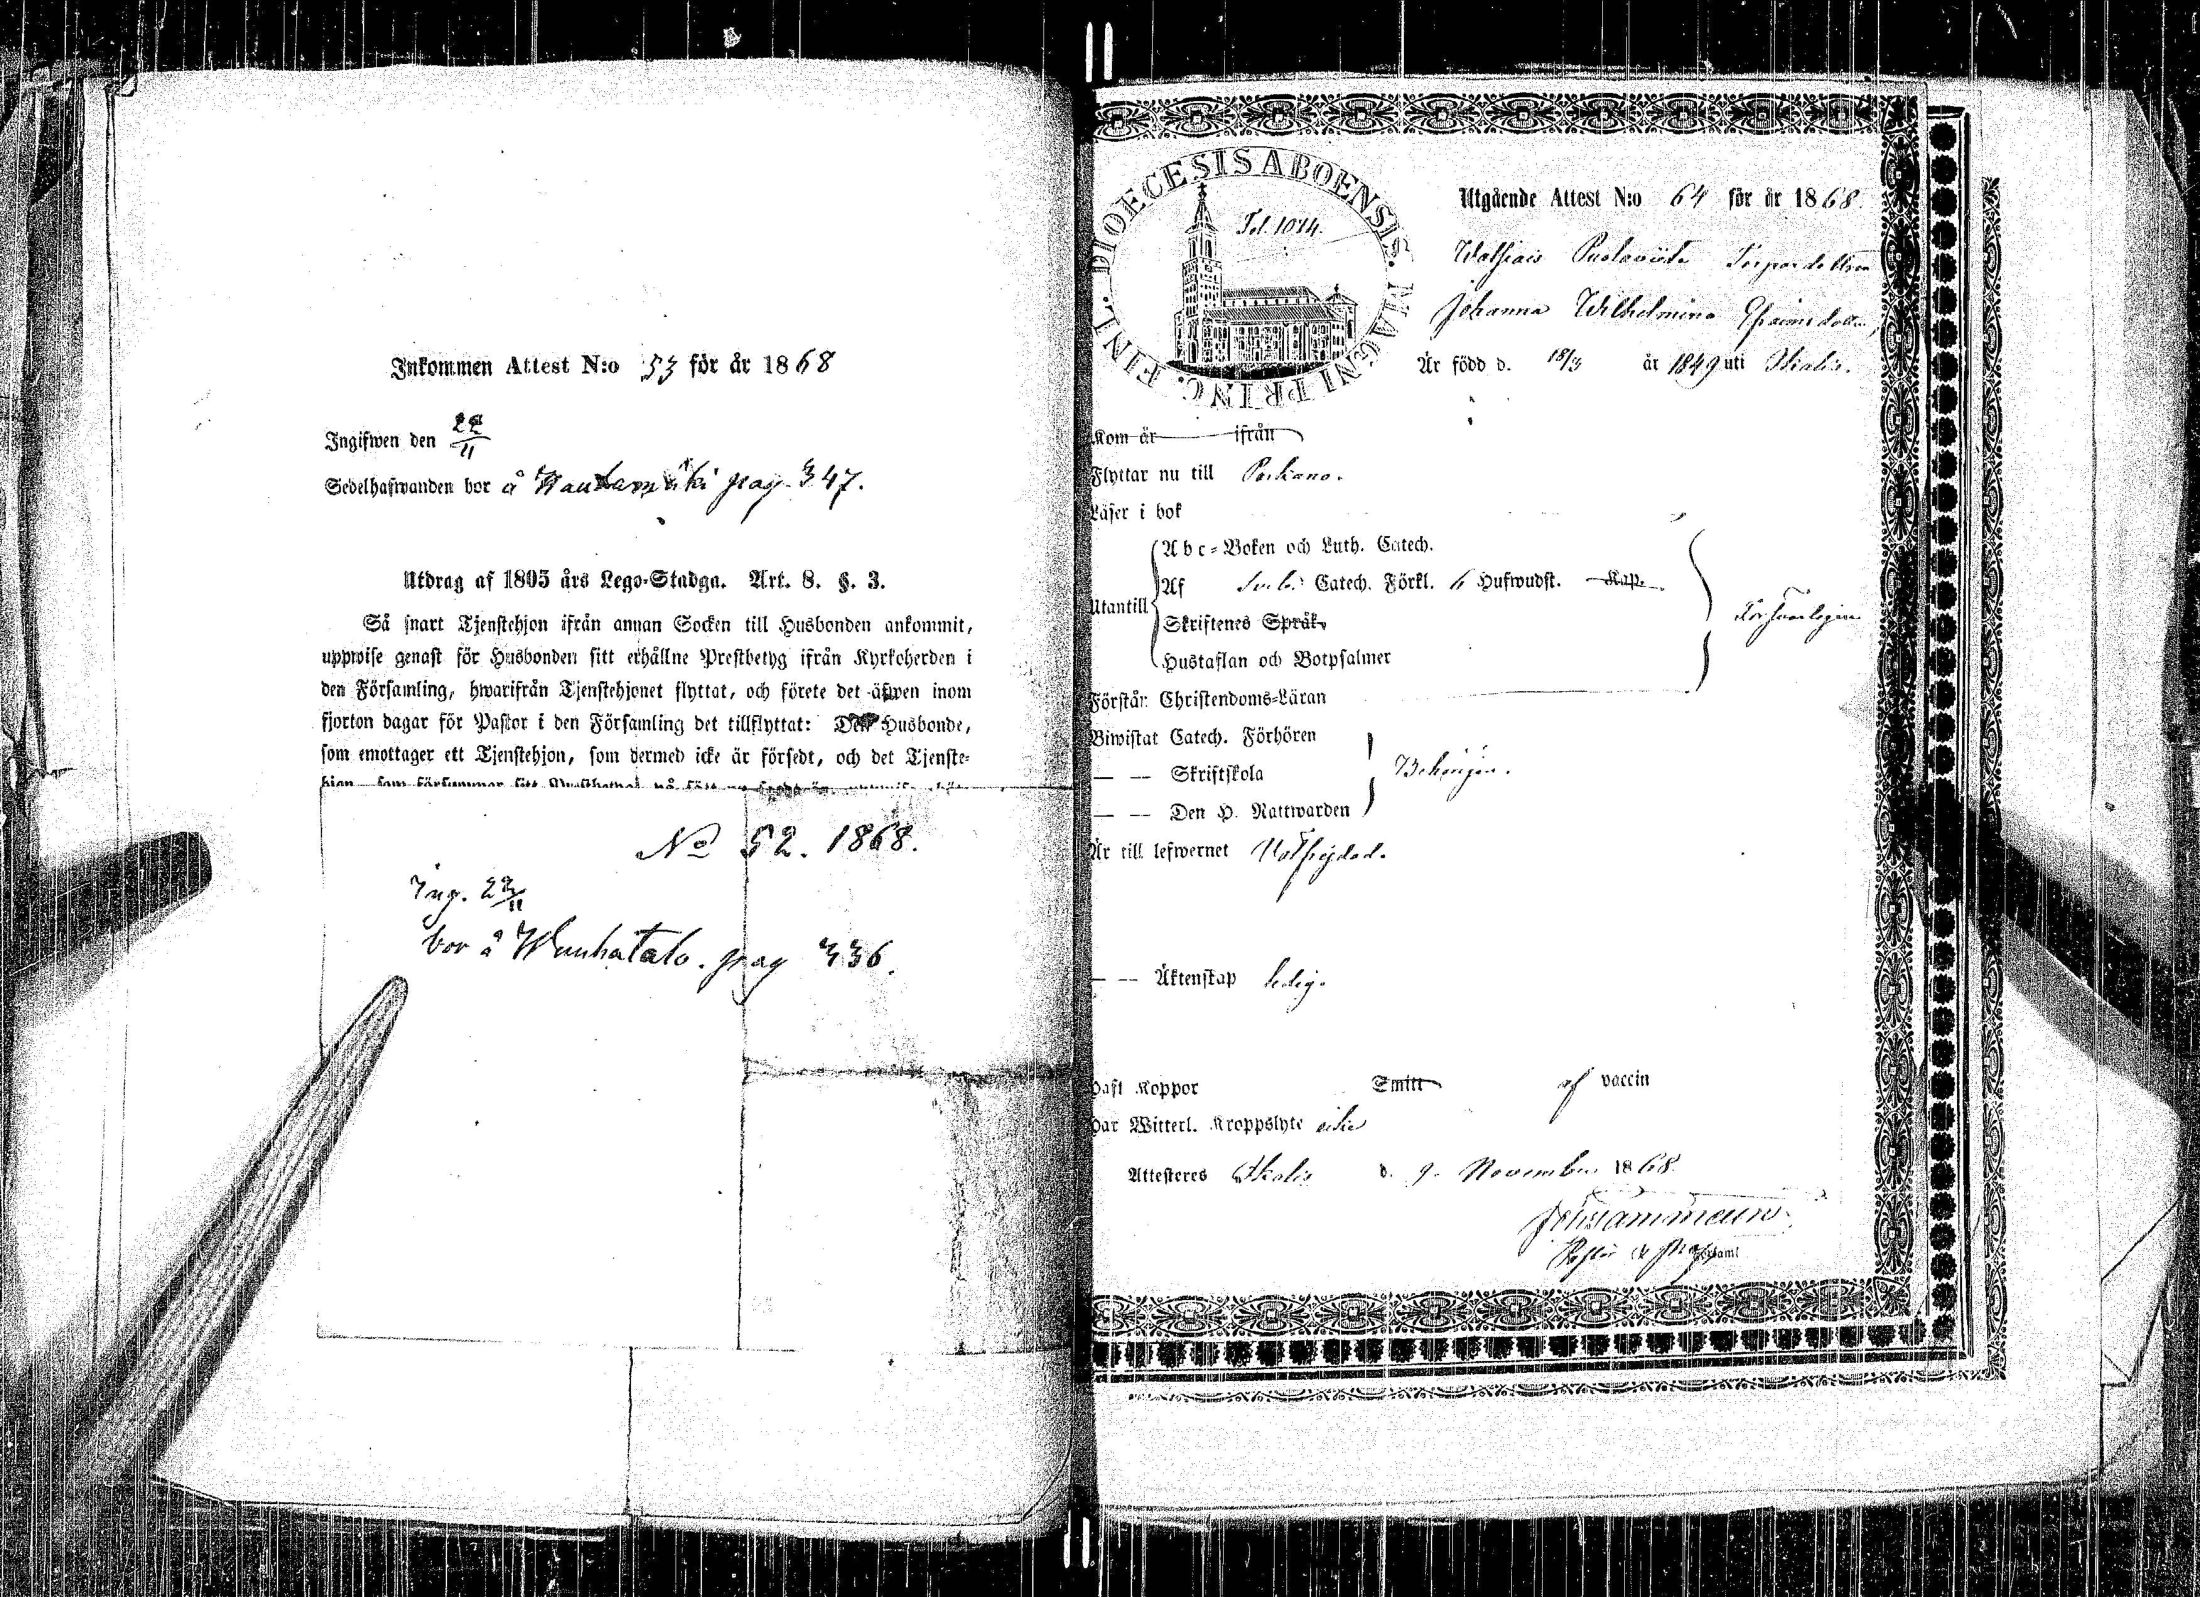 Inkommen Attest N:o 53 för år 1868
Ingifwen den 22/11
Sedelhafwanden bor å pag. 347.
Utdrag af 1805 års Lego-Stadga. Art. 8. §. 3.
Så snart Tjenstehjon ifrån annan Socken till Husbonden ankommit,
uppwise genast för Husbonden sitt erhållne Prestbetyg ifrån Kyrkoherden i
den Församling, hwarifrån Tjenstehjonet flyttat, och förete det äfwen inom
fjorton dagar för Pastor i den Församling det tillflyttat: Den Husbonde,
som emottager ett Tjenstehjon, som dermed icke är försedt, och det Tjenste-
hjon, som försummar sitt Prestbetyg på sätt
No 52. 1868.
Ing. 22/11
bor å Wanhatalo. pag 336.
DIOECESIS ABOENSIS. MAGNI PRINC. FINL.
Fol. 1074.
Utgående Attest N:o 64 för år 1868
Torpardottren
Johanna Wilhelmina Efraimsdotter,
Är född d. 18/3 år 1849 uti Ikalis.
Kom år ifrån
Flyttar nu till Parkano.
Läser i bok
Abc-Boken och Luth. Catech.
Af Catech. Förkl. 6 Hufwudst. Kap.
Utantill
Skriftenes Språk
Hustaflan och Botpsalmer
Förswarligen
Förstår Christendoms-Läran
Biwistat Catech. Förhören
— — Skriftskola
Behörigen.
— — Den H. Nattwarden
Är till lefwernet Wälfrejdad.
— — Äktenskap ledig.
Haft Koppor Smitt af vaccin
Har Witterl. Kroppslyte icke
Attesteres Ikalis d. 9. November 1868.